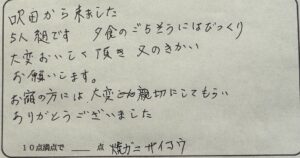 吹田から来ました
5人組です 夕食のごちそうにはびっくり
大変おいしく頂き 又のきかい
お願いします。
お宿の方には大変親切にしてもらい
ありがとうございました
10点満点で 点 焼ガニサイコウ